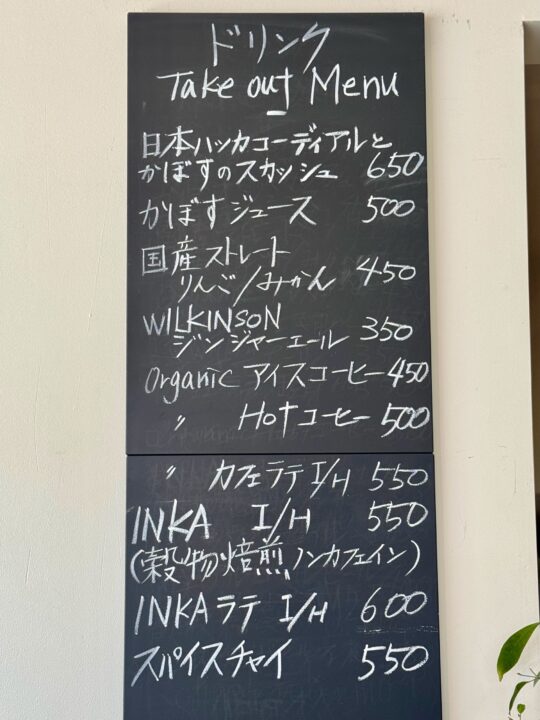 ドリンク
Take out Menu
日本ハッカコーディアルと
かぼすのスカッシュ 650
かぼすジュース 500
国産ストレート
りんご/みかん 450
WILKINSON
ジンジャーエール 350
Organic アイスコーヒー 450
〃 Hotコーヒー 500
〃 カフェラテ I/H 550
INKA I/H 550
(穀物焙煎ノンカフェイン)
INKAラテ I/H 600
スパイスチャイ 550